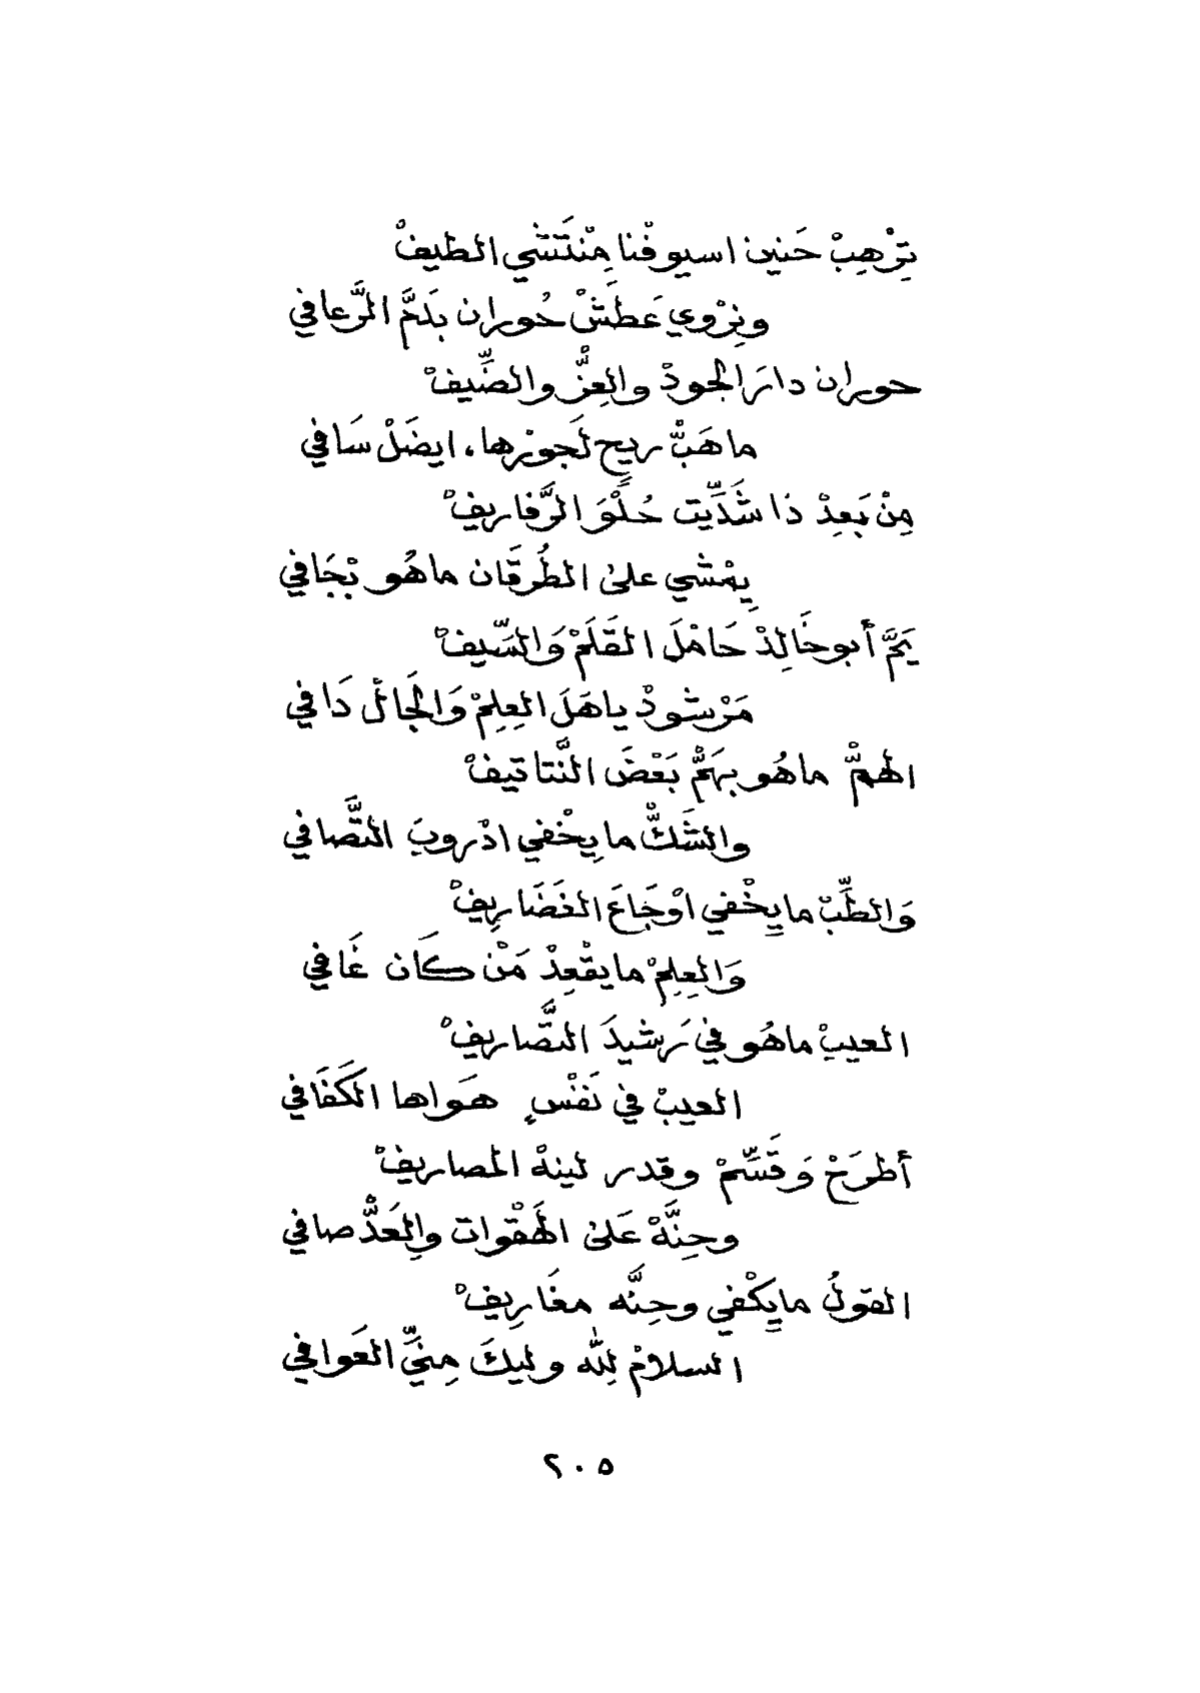 تِرْهِبْ حَنين اسيوفْنا مِنْتَشي الطيفْ
ونِرْوي عَطَشْ حُوران بِدَمَّ الرَّعافي
حوران دارَ الجودْ والعِزّْ والضِّيفْ
ما هَبّْ ريحٍ لَجَوْرها، ايضَلْ سَافي
مِنْ بَعِدْ ذا شَدِّيت حُلْوَ الرَّفاريفْ
يِمْشي على الطُرقَان ماهُو بْجَافي
يَمَّ أبوخَالِدْ حَامْلَ القَلَمْ وَالسِّيفْ
مَرْشودْ ياهَلَ العِلِمْ وَالجَالْ دَافي
الهمّْ ماهُو بهَمّْ بَعْضَ النَّتاتيفْ
والشَكّْ ما يِخْفي ادْروبَ التَّصافي
وَالطِّبْ ما يِخْفي اوْجَاعَ الغَضَاريفْ
وَالعِلِمْ ما يقْعِدْ مَنْ كَان غَافي
العيبْ ماهُو في رَشيدَ التَّصاريفْ
العيبْ في نَفْسٍ هَواها الكَفَافي
أطرَحْ وَقَسِّمْ وقدر لينهْ المصاريفْ
وحِنَّهْ عَلى الهَقْوات والعَدّْ صافي
القولْ ما يِكْفي وحِنَّه مغَاريفْ
السلامْ لله وليكَ مِنيِّ العَوافي
٢٠٥